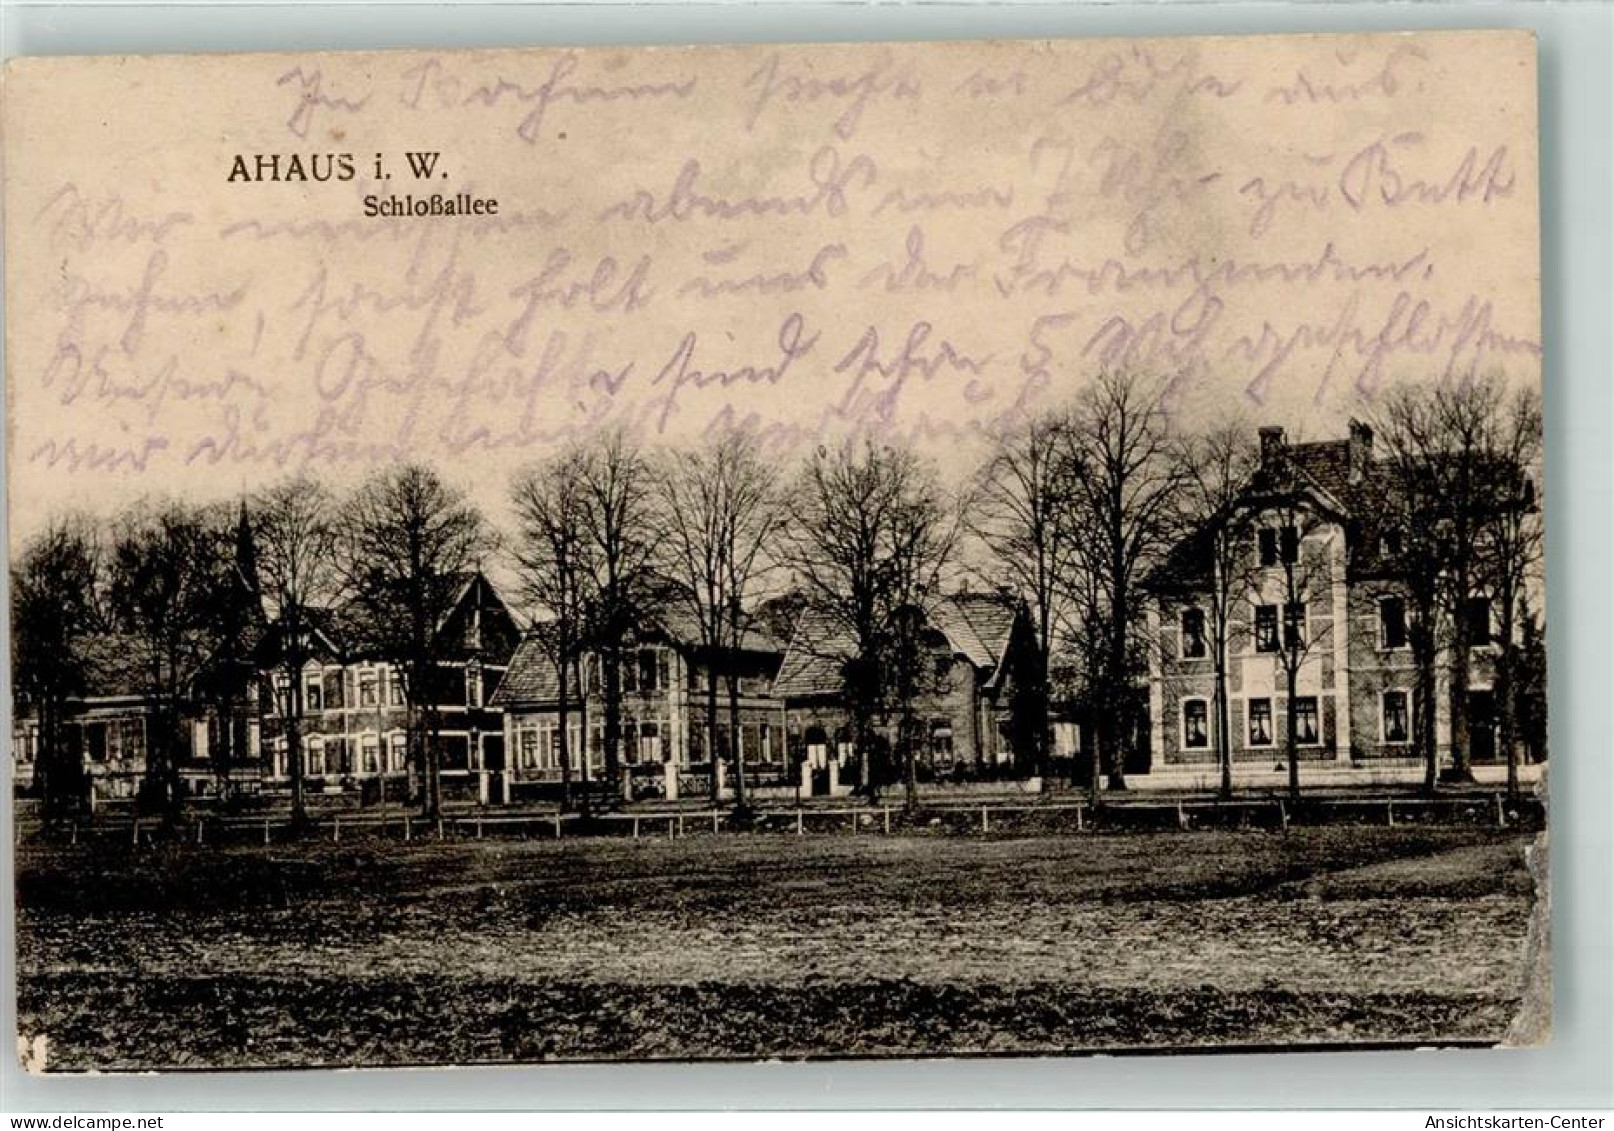 In Bochum sieht es böse aus.
AHAUS i. W.
Schloßallee
Wir müssen abends um 7 Uhr zu Bett
gehen, sonst holt uns der
Unsere Geschäfte sind schon 5 geschlossen
wir dürfen nicht
Ansichtskarten-Center